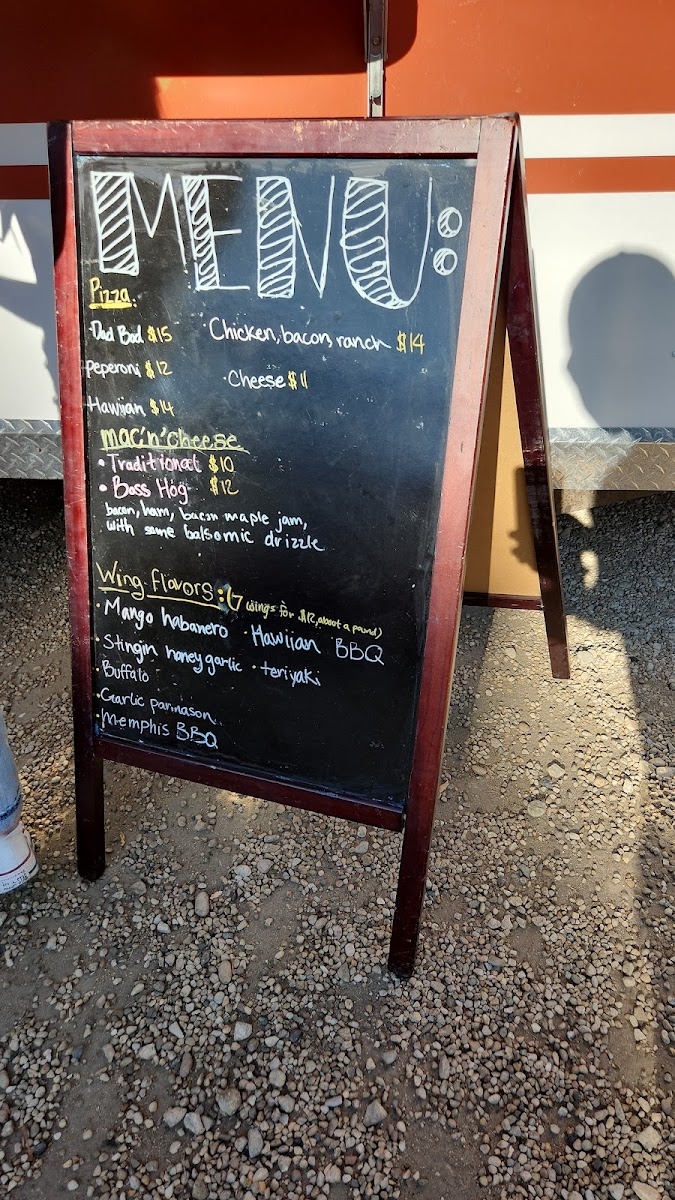 MENU:
Pizza
Dad Bod $15
Chicken, bacon, ranch $14
Peperoni $12
Cheese $11
Hawiian $14
mac'n'cheese
• Traditional $10
• Boss Hog $12
bacon, ham, bacon maple jam,
with some balsomic drizzle
Wing flavors: (7 wings for $12, about a pound)
• Mango habanero
• Hawiian BBQ
• Stingin honey garlic
• teriyaki
• Buffalo
• Garlic parmason
• Memphis BBQ